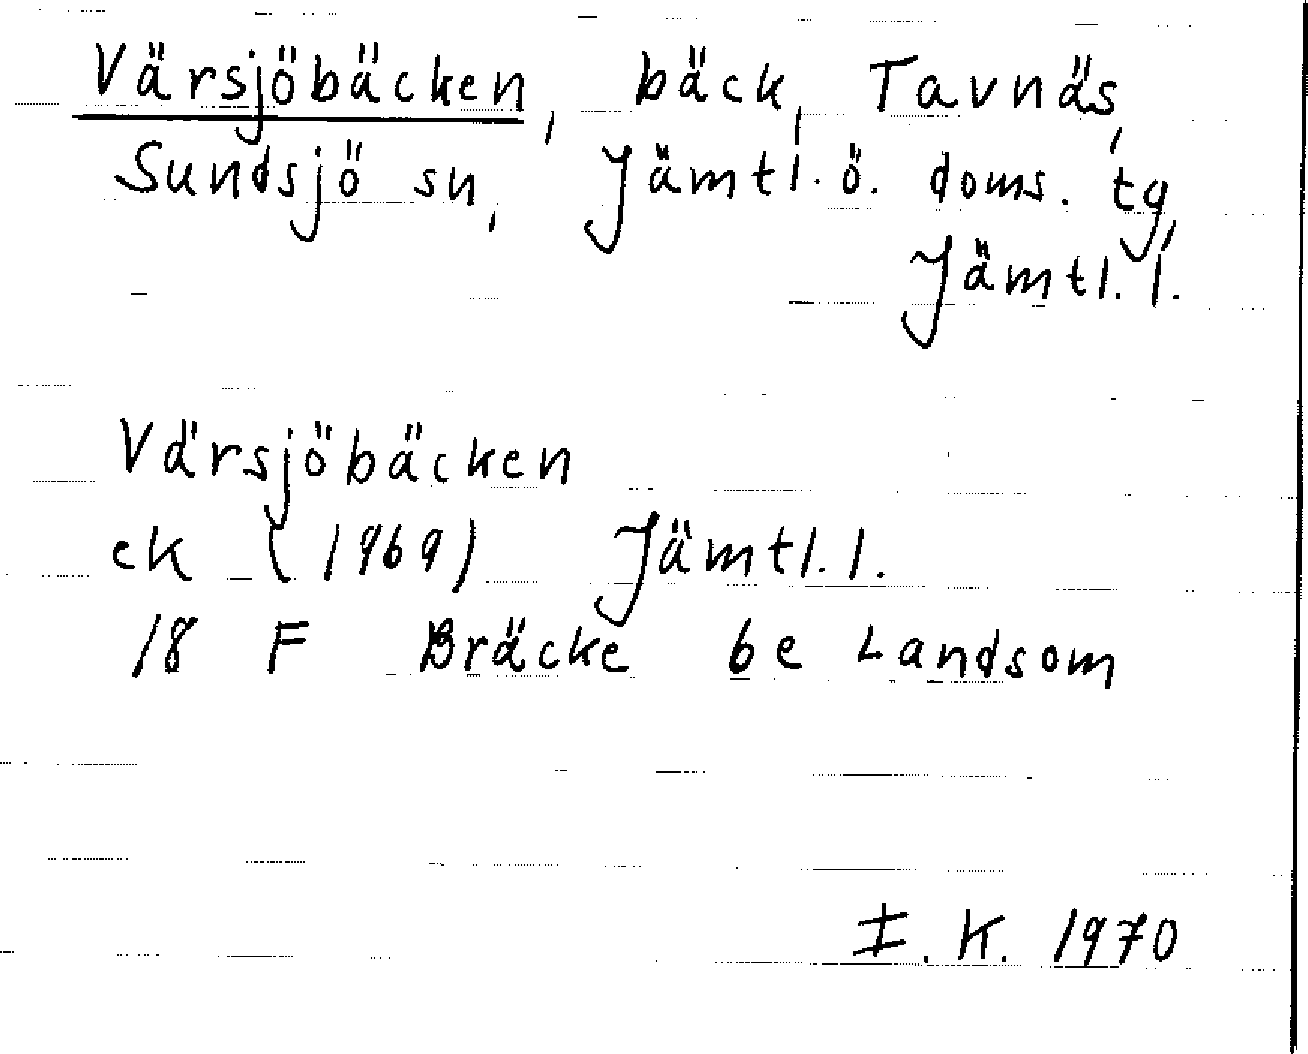 Värsjöbäcken, bäck, Tavnäs,
Sundsjö sn, Jämtl. ö. doms. tg,
Jämtl. l.
Värsjöbäcken
ek (1969) Jämtl. l.
18 F Bräcke 6e Landsom
I. K. 1970